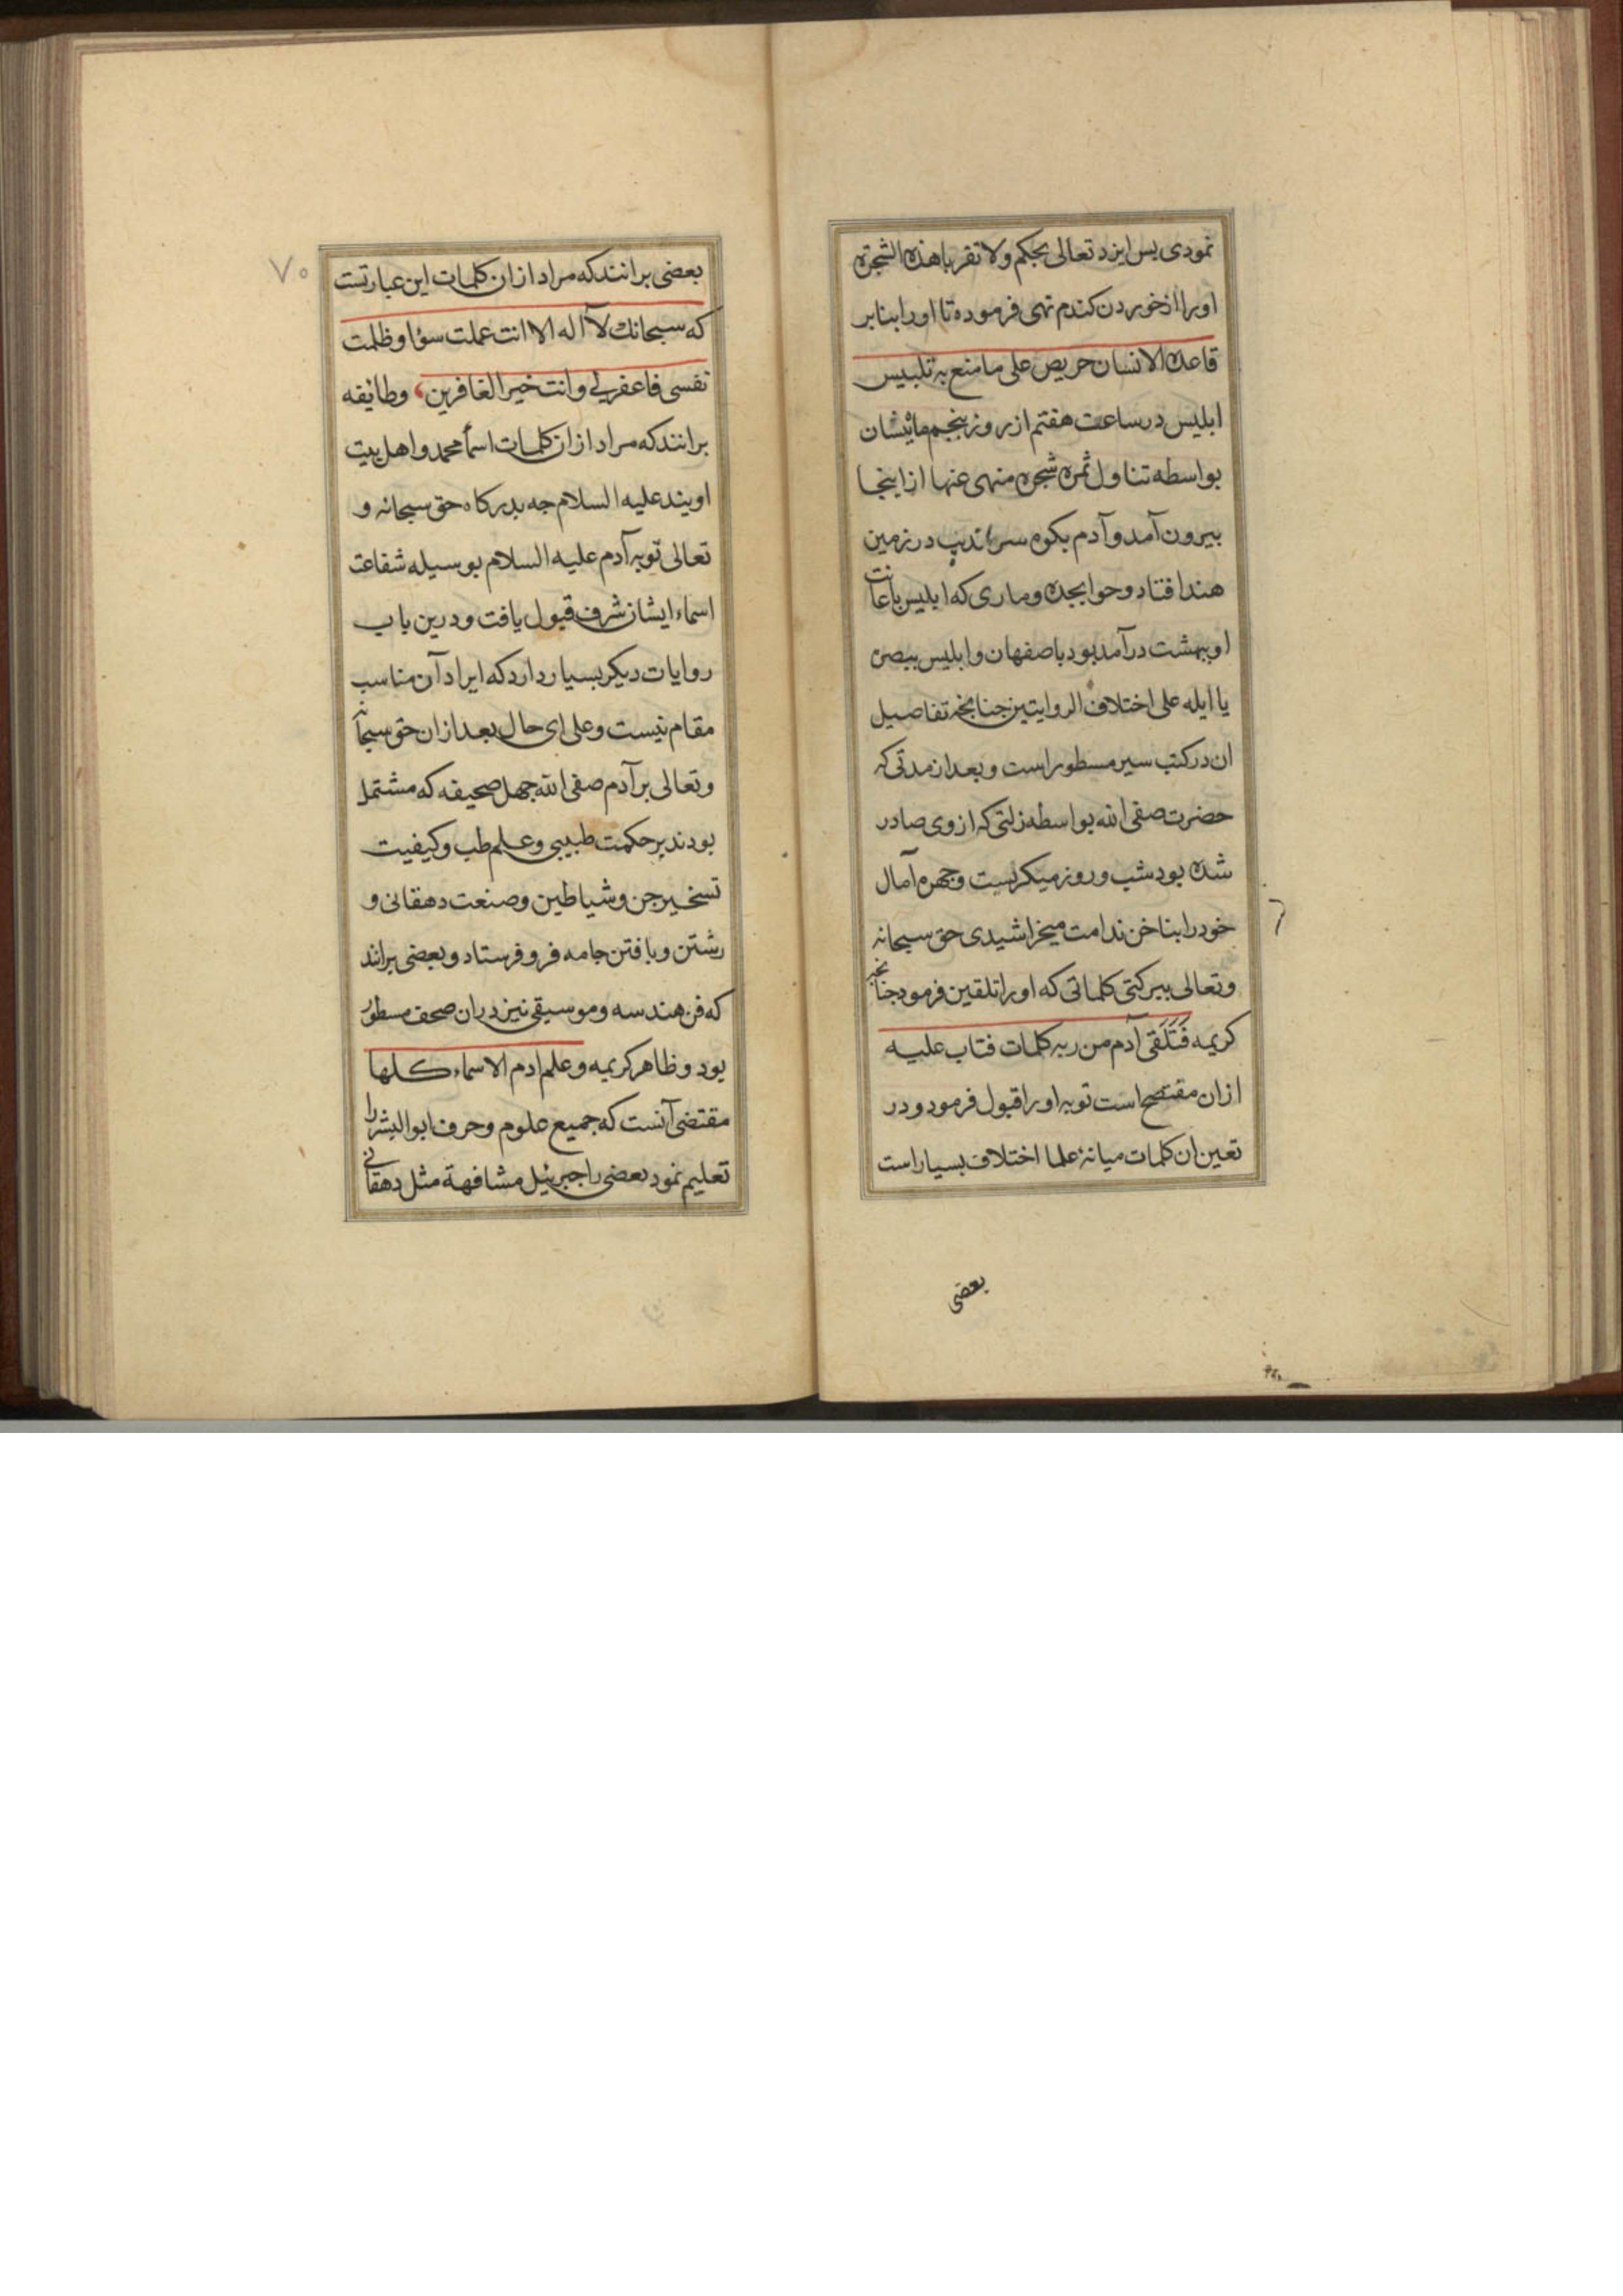 نمودی بس ایزد تعالی بجکم ولا تقربا هذه الشجرة
اورا از خوردن کندم نهی فرموده تا اورا بنابر
قاعدة الانسان حریص علی ما منع به تلبیس
ابلیس در ساعت هفتم از روز پنجم
بواسطه تناول ثمره شجره منهی عنها از اینجا
بیرون آمد و آدم بکوه سراندیب در زمین
هند افتاد و حوا بجده و ماری که ابلیس باعانت
او ببهشت درآمد بود باصفهان و ابلیس ببصره
یا ایله علی اختلاف الروایتین جنانجه تفاصیل
ان در کتب سیر مسطور است و بعد از مدتی که
حضرت صفی الله بواسطه زلتی که از وی صادر
شده بود شب و روز میکریست و جهره آمال
خود را بناخن ندامت میخراشیدی حق سبحانه
وتعالی ببرکتی کلماتی که اورا تلقین فرمود جنانجه
کریمه فَتَلَقی آدم من ربه کلمات فتاب علیه
ازان مفتضح است توبه اورا قبول فرمود و در
تعین ان کلمات میانهٔ علما اختلاف بسیار است
بعضی
۷۰
بعضی برانند که مراد از ان کلمات این عبارتست
که سبحانك لا اله الا انت عملت سؤا وظلمت
نفسی فاغفرلی وانت خیر الغافرین، وطایفه
برانند که مراد از ان کلمات اسمآ محمد و اهل بیت
اویند علیه السلام جه بدرکاه حق سبحانه و
تعالی توبه آدم علیه السلام بوسیله شفاعت
اسماء ایشان شرف قبول یافت و درین باب
روایات دیکر بسیار دارد که ایراد آن مناسب
مقام نیست و علی ای حال بعد ازان حق سبحانه
وتعالی بر آدم صفی الله جهل صحیفه که مشتمل
بودند بر حکمت طبیبی و علم طب و کیفیت
تسخیر جن و شیاطین و صنعت دهقانی و
رشتن و بافتن جامه فرو فرستاد و بعضی براند
که فن هندسه و موسیقی نیز دران صحف مسطور
بود و ظاهر کریمه وعلم ادم الاسماء کلها
مقتضی آنست که جمیع علوم و حرف ابوالبشر را
تعلیم نمود بعضی را جبرئیل مشافهة مثل دهقانی